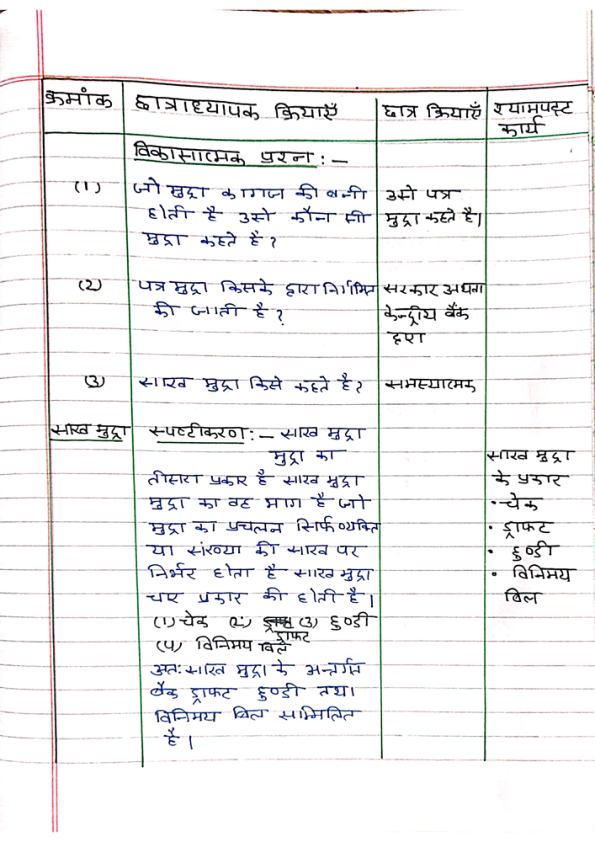 क्रमांक
छात्राध्यापक क्रियाएँ
छात्र क्रियाएँ
श्यामपट्ट
कार्य
विकासात्मक प्रश्न :-
(1)
जो मुद्रा कागज की बनी
होती है उसे कौन सी
मुद्रा कहते है ?
उसे पत्र
मुद्रा कहते है।
(2)
पत्र मुद्रा किसके द्वारा निर्गमित
की जाती है ?
सरकार अथवा
केन्द्रीय बैंक
द्वारा
(3)
साख मुद्रा किसे कहते है ?
समस्यात्मक
साख मुद्रा
स्पष्टीकरण :- साख मुद्रा
मुद्रा का
तीसरा प्रकार है साख मुद्रा
मुद्रा का वह भाग है जो
मुद्रा का प्रचलन सिर्फ व्यक्ति
या संस्था की साख पर
निर्भर होता है साख मुद्रा
चार प्रकार की होती है।
(1) चेक (2) ड्राफ्ट (3) हुण्डी
(4) विनिमय बिल
अतः साख मुद्रा के अन्तर्गत
बैंक ड्राफ्ट हुण्डी तथा
विनिमय बिल सम्मिलित
है।
साख मुद्रा
के प्रकार
• चेक
• ड्राफ्ट
• हुण्डी
• विनिमय
बिल